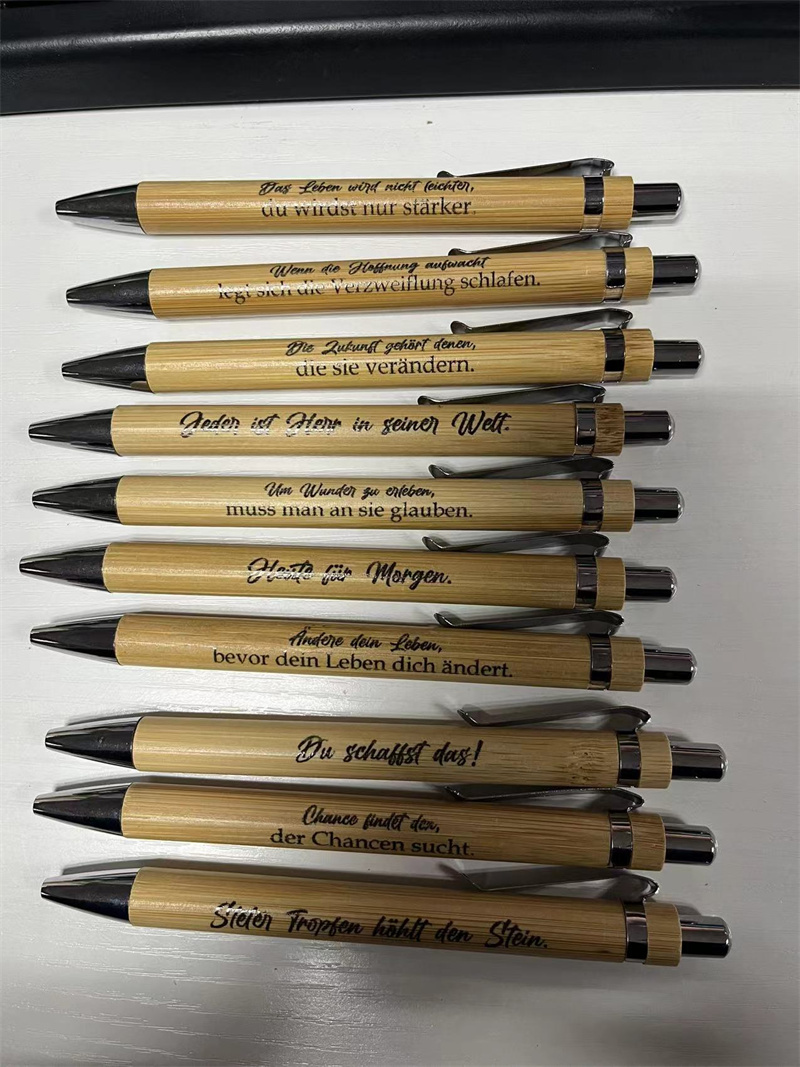 Das Leben wird nicht leichter,
du wirdst nur stärker.
Wenn die Hoffnung aufwacht
legt sich die Verzweiflung schlafen.
Die Zukunft gehört denen,
die sie verändern.
Jeder ist Herr in seiner Welt.
Um Wunder zu erleben,
muss man an sie glauben.
Heute für Morgen.
Ändere dein Leben,
bevor dein Leben dich ändert.
Du schaffst das!
Chance findet den,
der Chancen sucht.
Steter Tropfen höhlt den Stein.